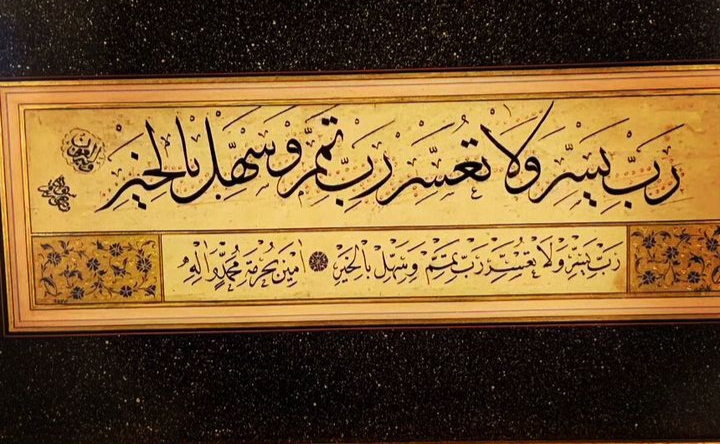 رَبِّ يَسِّرْ وَلَا تُعَسِّرْ رَبِّ تَمِّمْ وَسَهِّلْ بِالْخَيْرْ
رَبِّ يَسِّرْ وَلَا تُعَسِّرْ رَبِّ تَمِّمْ وَسَهِّلْ بِالْخَيْرْ اٰمِينَ بِحُرْمَةِ مُحَمَّدٍ وَاٰلِهِ